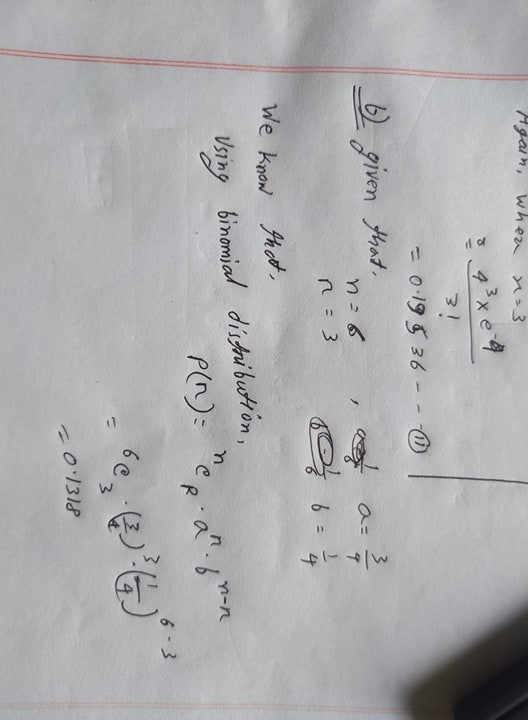 Again, when x=3
= 4³ x e⁻⁴ / 3!
= 0.19536 - - - (ii)
b) given that,
n = 6 , a = 3/4
r = 3 b = 1/4
We know that,
Using binomial distribution,
P(r) = ⁿC_r . aʳ . bⁿ⁻ʳ
= ⁶C₃ . (3/4)³ . (1/4)⁶⁻³
= 0.1318